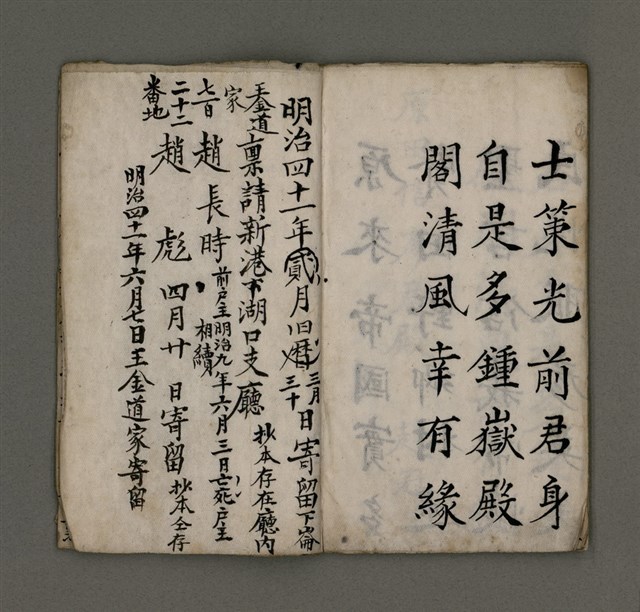 士策光前君身
自是多鍾嶽殿
閣清風幸有緣
明治四十一年貳月旧曆三月三十日寄留下崙
王金道家稟請新港下湖口支廳 抄本存在廳內
七百二十二番地
趙長時 前戶主明治九年六月三日亡死戶主相續
趙彪 四月廿日寄留 抄本仝存
明治四十一年六月七日王金道家寄留